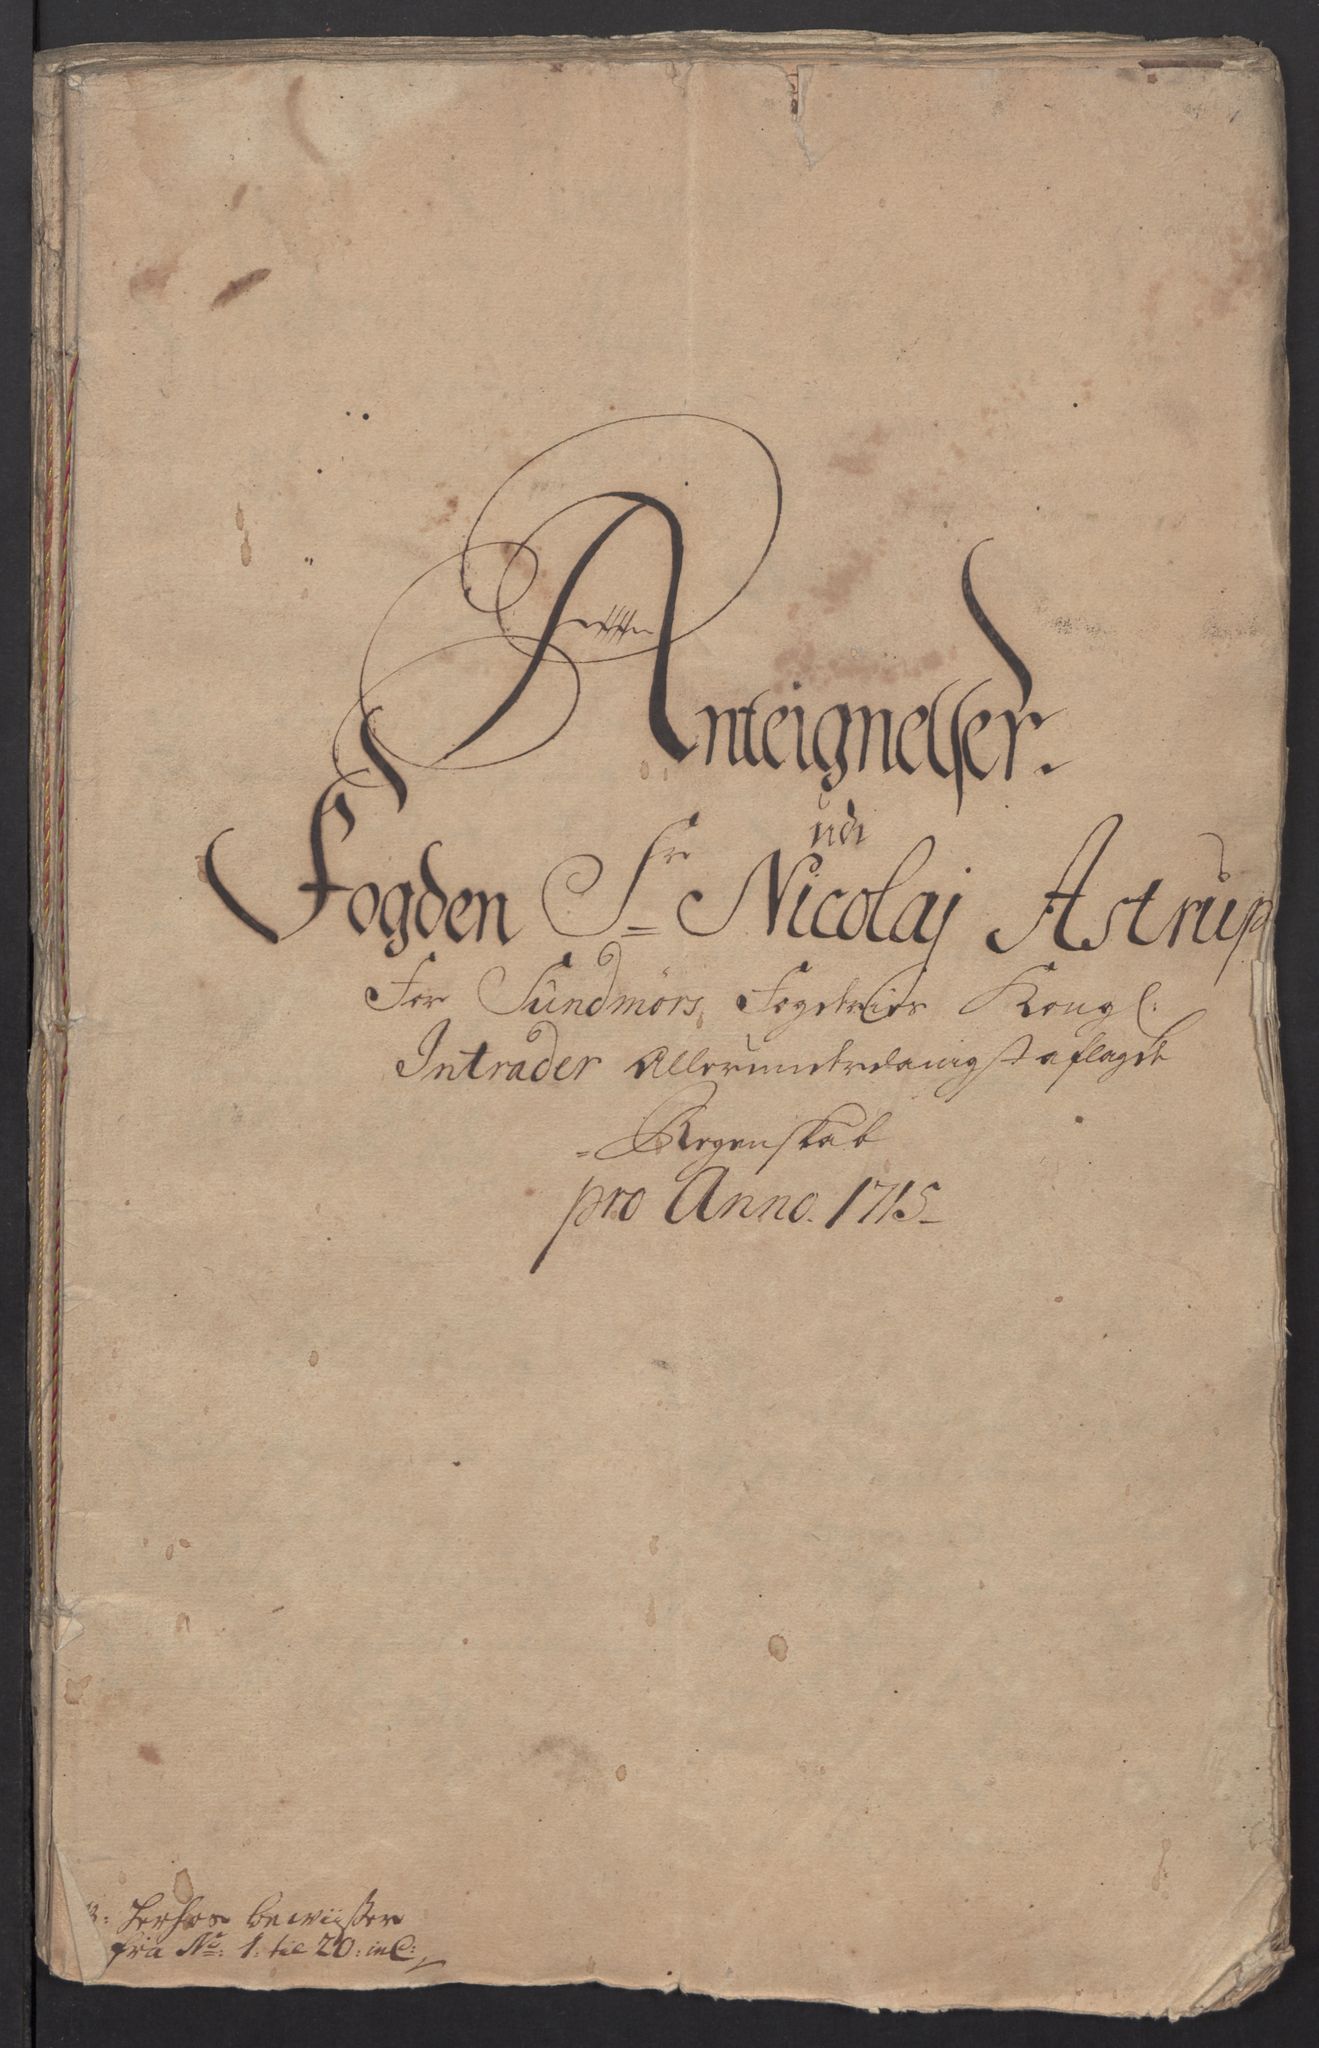 Anteignelser.
udi
Fogden Sr Nicolaj Astrup
For Sundmörs Fogderies Kongl:
Intrader Allerunderdanigst aflagde
Regenskab
pro Anno. 1715
Herhos bewiisser
fra No: 1: til 20: incl: